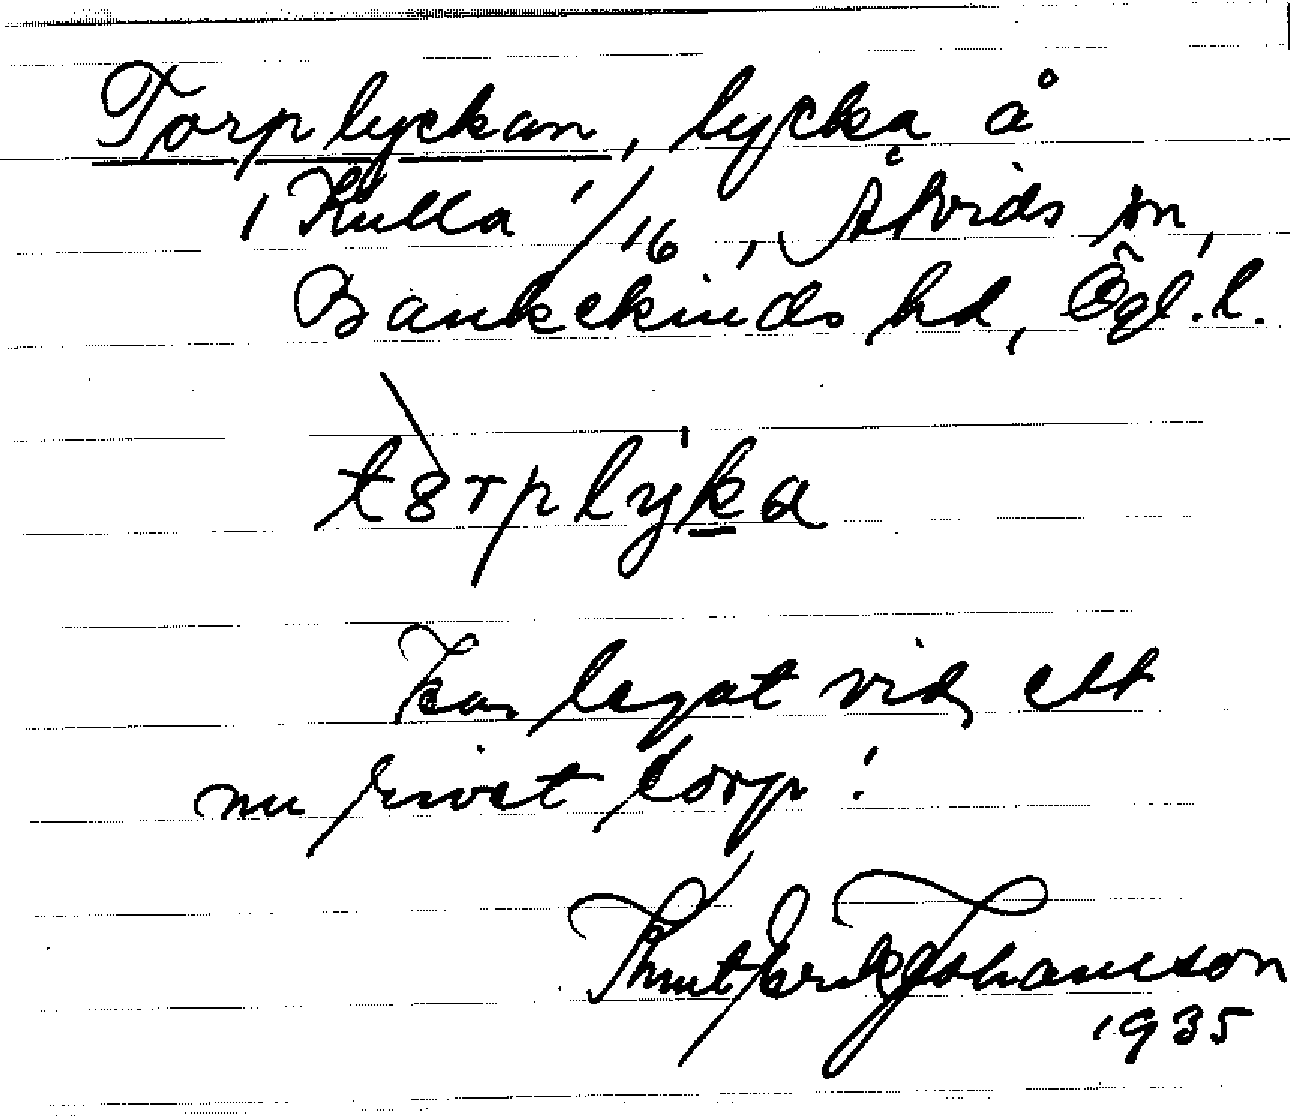 Torplyckan, lycka å
Kulla 1/16, Åtvids sn,
Bankekinds hd, Ögl. l.
tȣrplyka
Har legat vid ett
nu rivet torp!
Knut Erik Johansson
1935